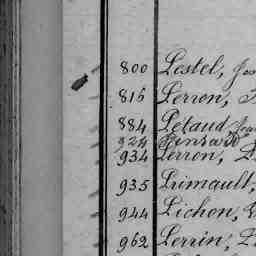 800 Pestel, Jos
816 Perron, F
884 Pétaud, Jea
924 Pinsard
934 Perron, D
935 Primault,
944 Pichon, V
962 Perrin, F